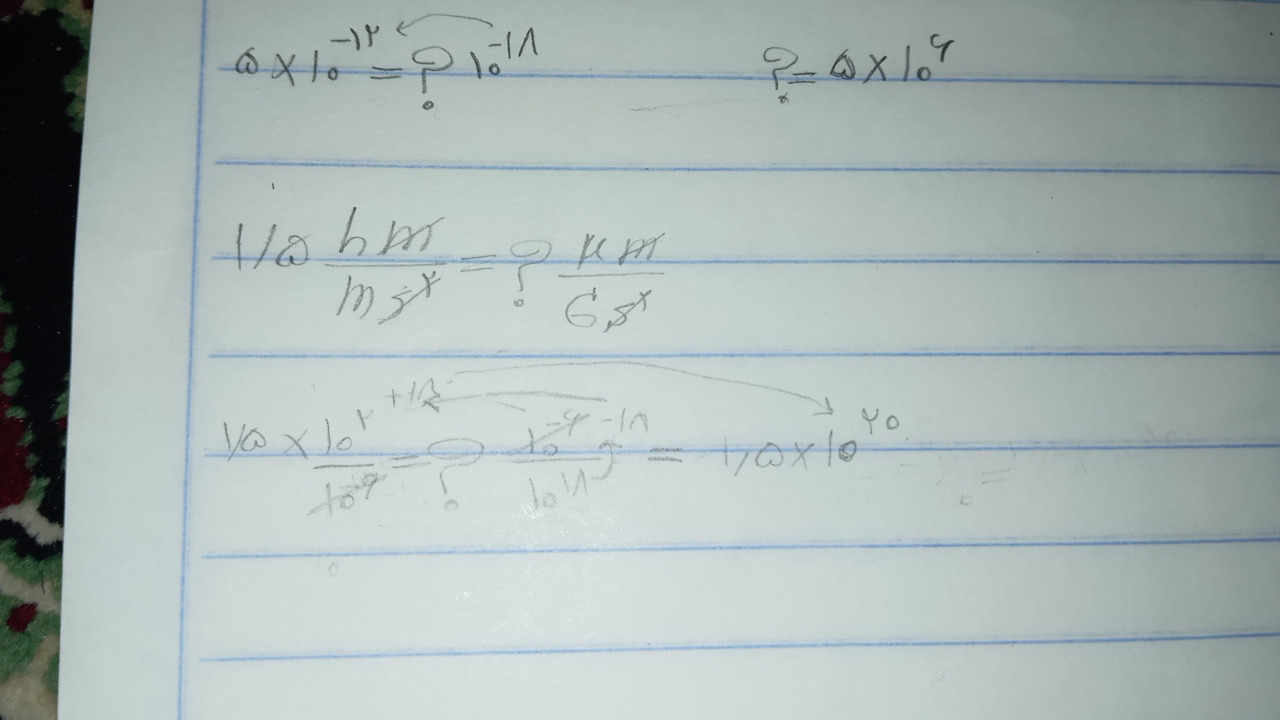 ۵ × ۱۰^-۱۲ = ? ۱۰^-۱۸ ? = ۵ × ۱۰^۶
۱/۵ hm/ms^۲ = ? μm/Gs^۲
۱/۵ × ۱۰^۲/۱۰^-۶ = ? ۱۰^-۶/۱۰^۱۸ = ۱/۵ × ۱۰^۲۰